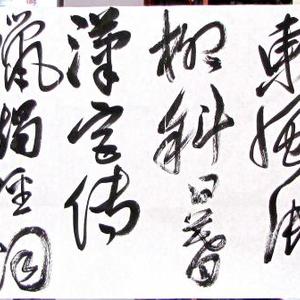 東風御
柳斜日暮
漢宮傳
蠟燭輕烟